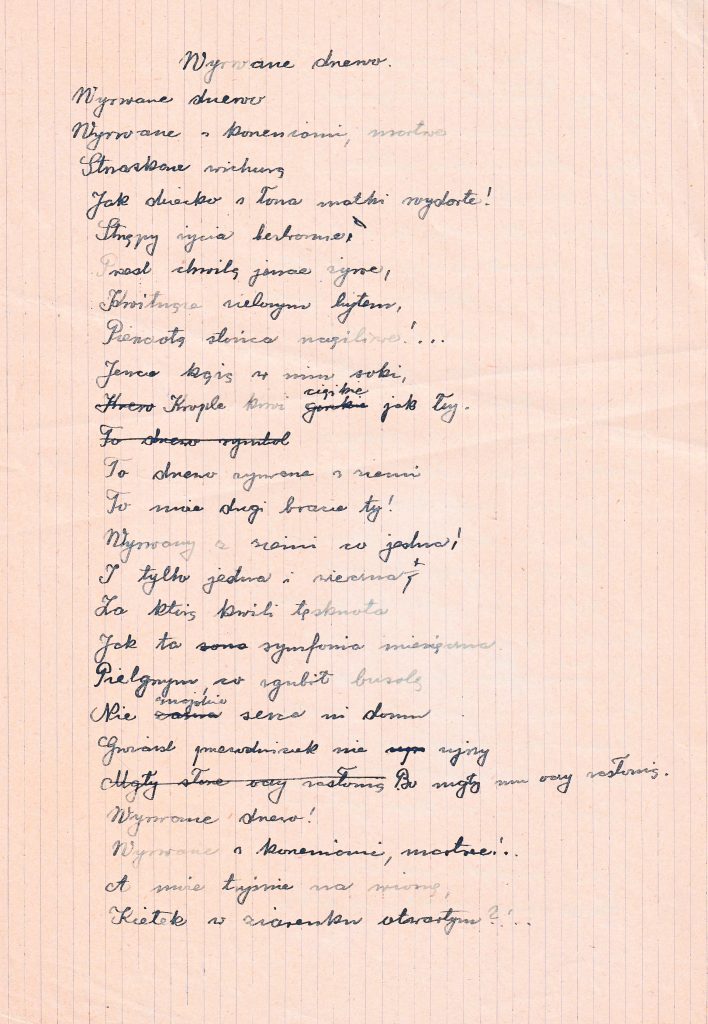 Wyrwane drzewo.
Wyrwane drzewo
Wyrwane z korzeniami, martwe
Strzaskane wichurą
Jak dziecko z łona matki wydarte!
Strzępy życia bezbronne,
Przed chwilą jeszcze żywe,
Kwitnące zielonym bytem,
Pieszczotą słońca
Jeszcze krążą w nim soki,
Krew Krople krwi gorzkie ciężkie jak łzy.
To drzewo symbol
To drzewo wyrwane z ziemi
To mnie drugi bracie ty!
Wyrwany z ziemi co jedna!
I tylko jedna i wieczna!
Za którą kwili tęsknota
Jak ta sona symfonia miesięczna
Pielgrzym co zgubił busolę
Nie zazna znajdzie serca ni domu
Gwiazd przewodniczek nie ujrzy
Mgły słone oczy zasłonią Bo mgły mu oczy zasłonią.
Wyrwane drzewo!
Wyrwane z korzeniami, martwe!..
A może trzyma na wiosnę,
Kiełek w ziarenku otwartym?!..